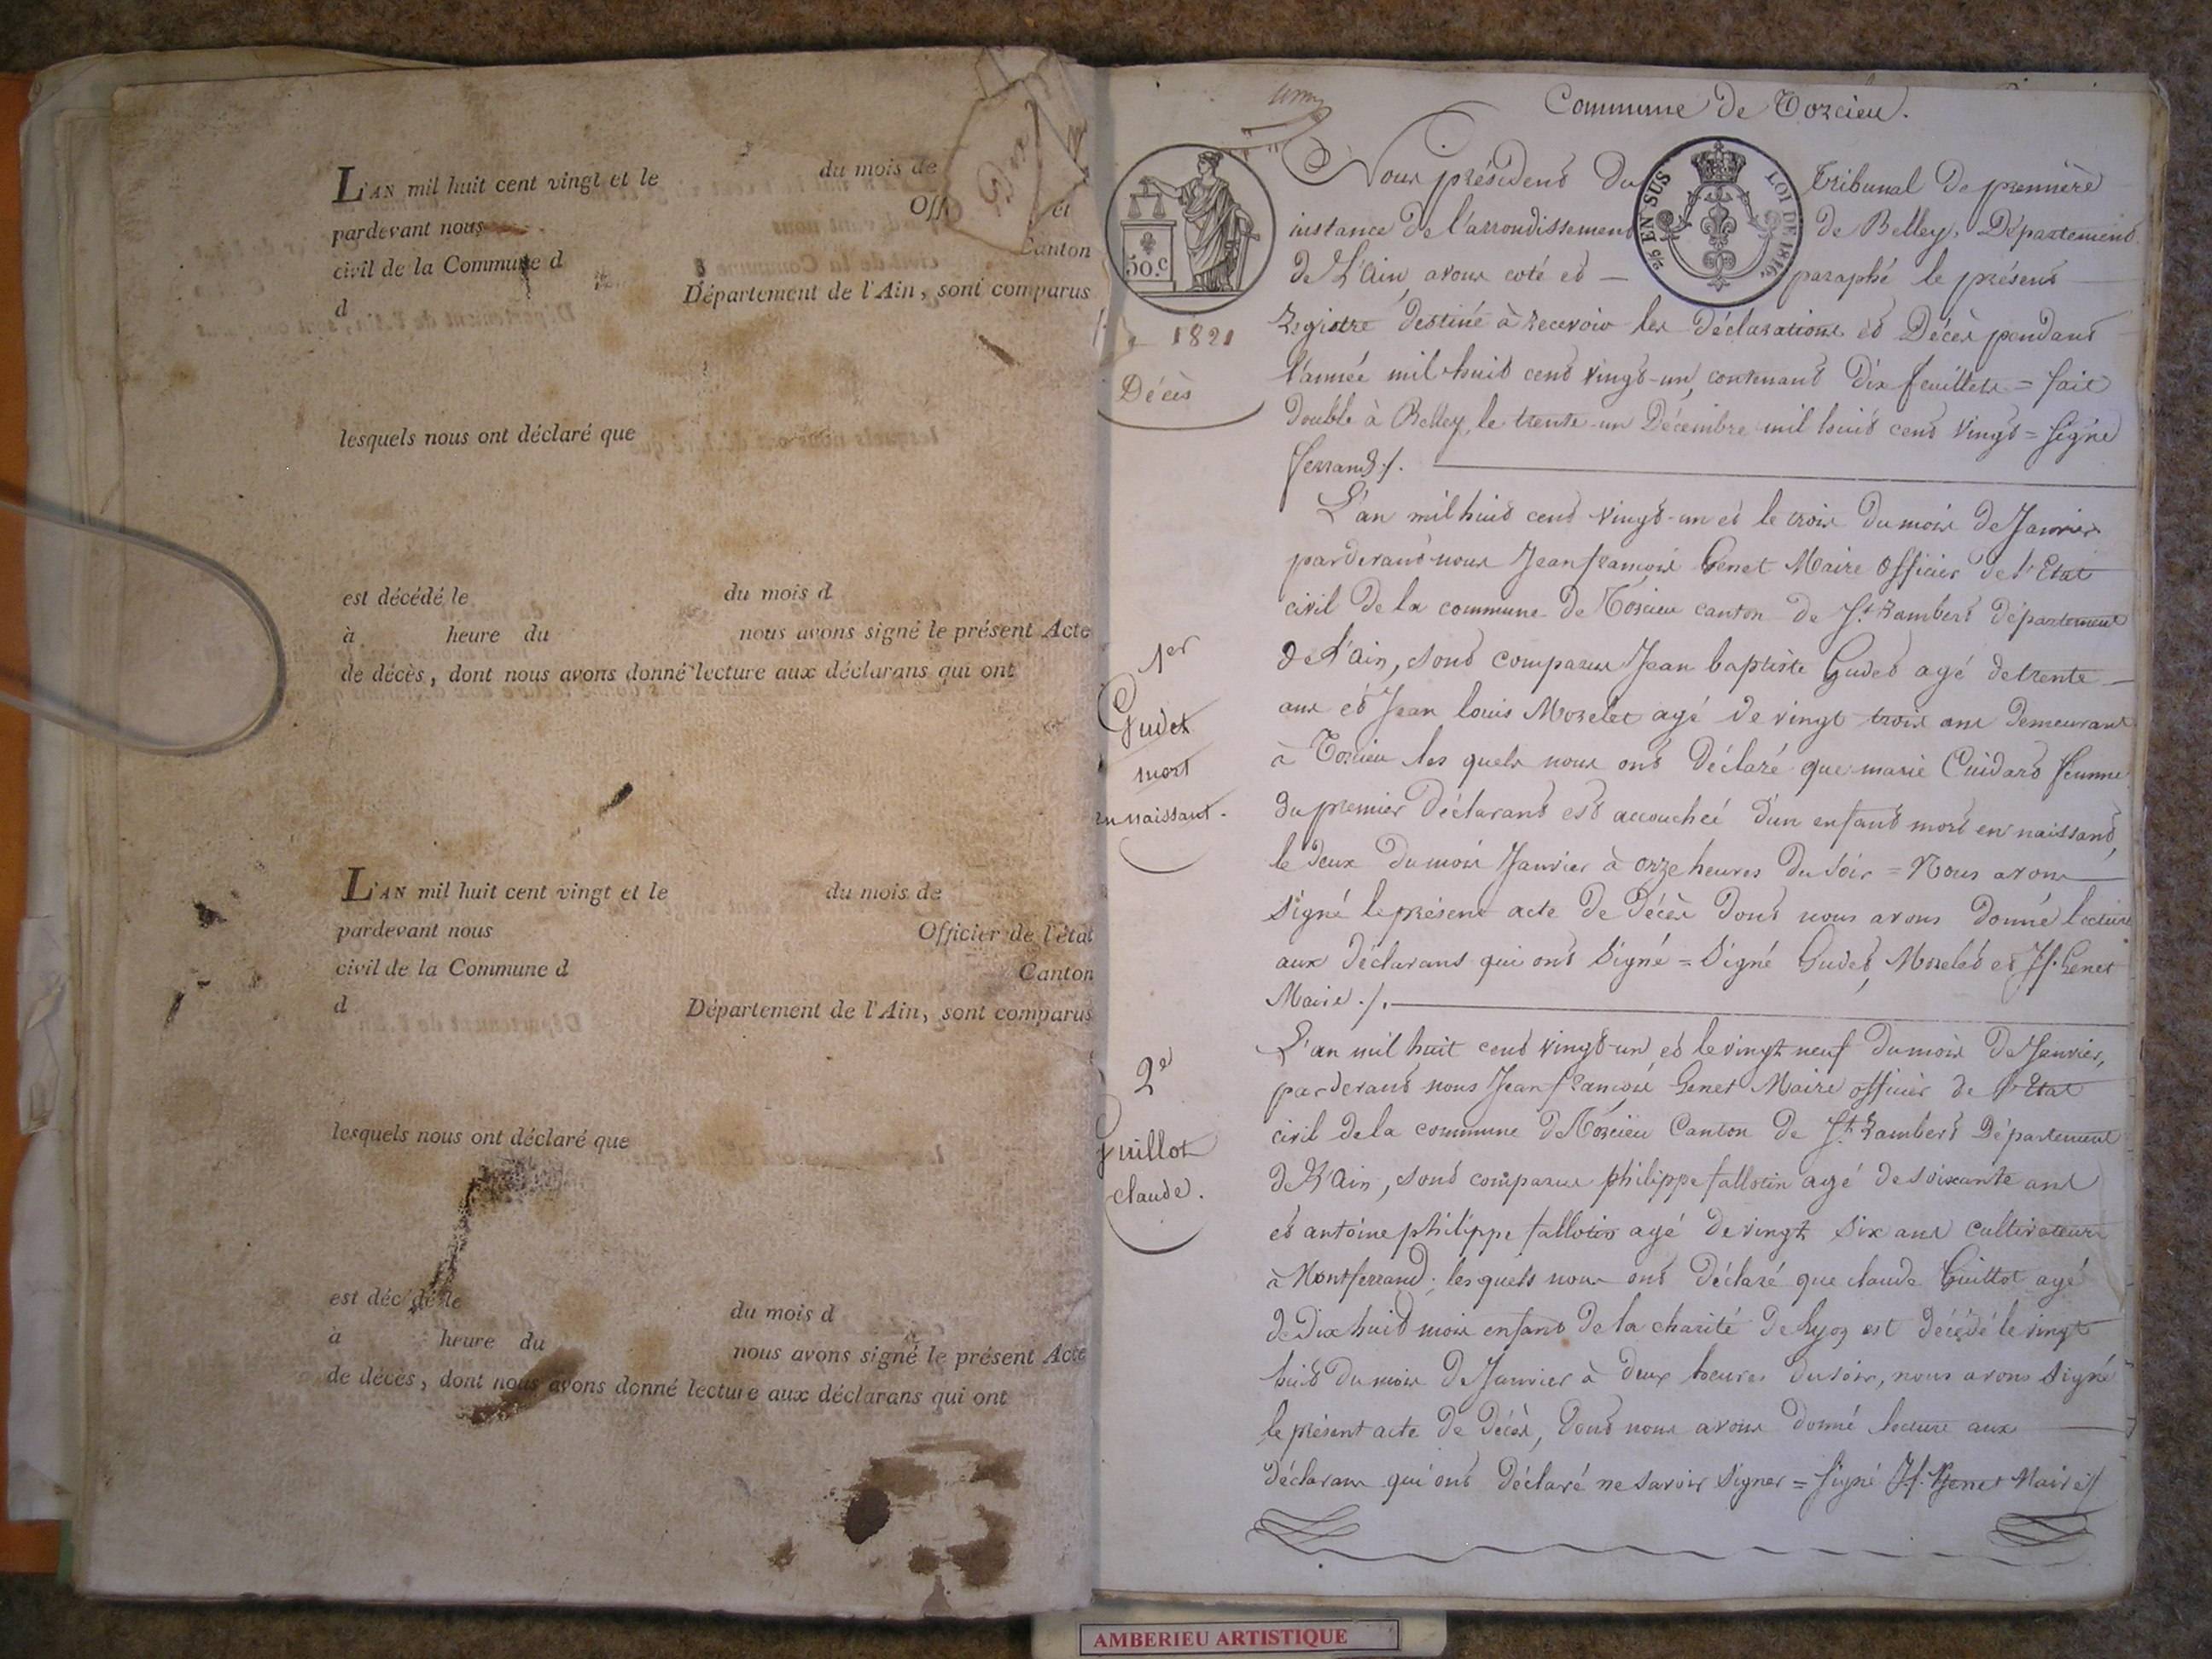 L'AN mil huit cent vingt et le du mois de
pardevant nous Off et
civil de la Commune d Canton
d Département de l'Ain, sont comparus
lesquels nous ont déclaré que
est décédé le du mois d
à heure du nous avons signé le présent Acte
de décès, dont nous avons donné lecture aux déclarans qui ont
L'AN mil huit cent vingt et le du mois de
pardevant nous Officier de l'état
civil de la Commune d Canton
d Département de l'Ain, sont comparus
lesquels nous ont déclaré que
est décédé le du mois d
à heure du nous avons signé le présent Acte
de décès, dont nous avons donné lecture aux déclarans qui ont
Commune de Torcieu.
50.c
25 EN SUS LOI DE 1816.
1821
Décès
Nous président du tribunal de première
instance de l'arrondissement de Belley, Département
de L'Ain avons coté et — paraphé le présent
Registre destiné à recevoir les déclarations et Décès pendant
l'année mil huit cent vingt-un, contenant dix feuillets = fait
Double à Belley le trente-un Décembre mil huit cent vingt = signé
ferrand ./.
1er
Gudet
mort
en naissant.
L'an mil huit cent vingt-un et le trois du mois de Janvier
pardevant nous Jean françois Genet Maire officier de l'Etat
civil de la commune de Torcieu canton de St. Rambert département
de L'ain, sont comparus Jean baptiste Gudet agé de trente —
ans et Jean louis Morelet agé de vingt trois ans demeurant
à Torcieu les quels nous ont déclaré que marie Cuidard femme
du premier déclarant est accouchée d'un enfant mort en naissant,
le deux du mois Janvier à onze heures du soir = Nous avons —
signé le présent acte de décès dont nous avons donné lecture
aux déclarans qui ont signé = signé Gudet, Morelet et Jf. Genet
Maire ./.
2e
Guillot
claude.
L'an mil huit cent vingt-un et le vingt neuf du mois de Janvier,
pardevant nous Jean françois Genet Maire officier de l'Etat
civil de la commune de Torcieu Canton de St. Rambert Département
de L'ain, sont comparus philippe fallotin agé de soixante ans
et antoine philippe fallotin agé de vingt six ans cultivateurs
à Montferrand; lesquels nous ont déclaré que claude Guillot agé
de dix huit mois enfant de la charité de Lyon est décédé le vingt
huit du mois de Janvier à deux heures du soir, nous avons signé
le présent acte de décès, dont nous avons donné lecture aux —
déclarans qui ont déclaré ne savoir signer = signé J.f. Genet Maire ./.
AMBERIEU ARTISTIQUE